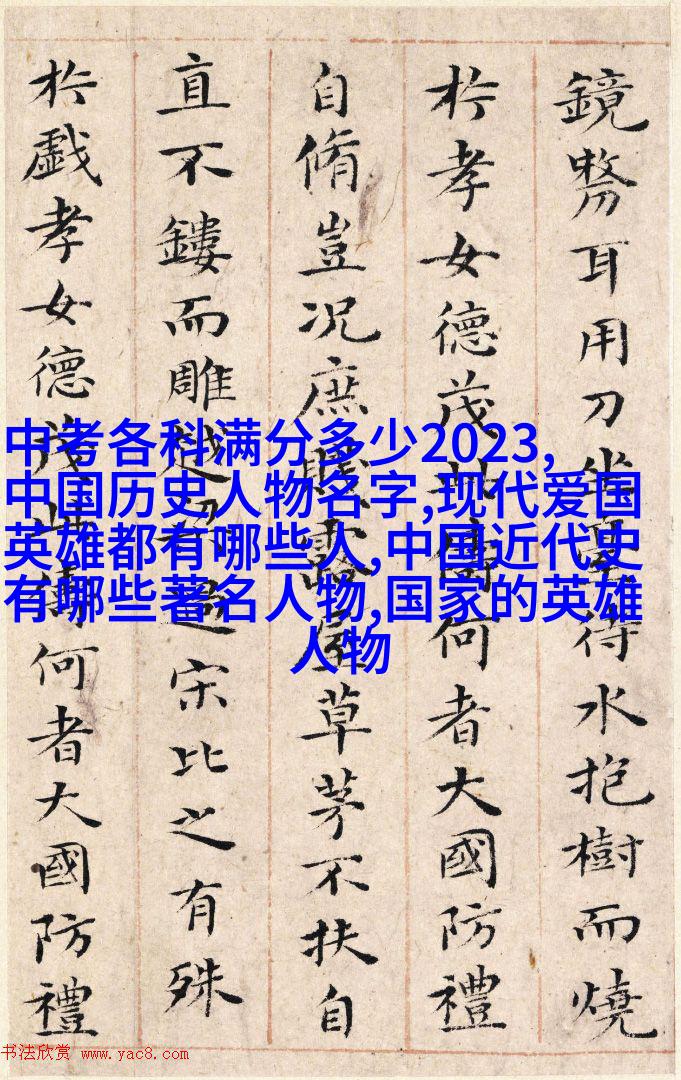 鏡剺耳用刀坐臺待水抱樹而燒
於孝女德茂此儔何者大國防禮
自脩豈况庶賤露屋草茅不扶自
直不鏤而雕越梁過宋比之有殊
於戯孝女德茂此儔何者大國防禮
中考各科满分多少2023,
中国历史人物名字,现代爱国
英雄都有哪些人,中国近代史
有哪些著名人物,国家的英雄
人物
书法欣赏 www.yac8.com